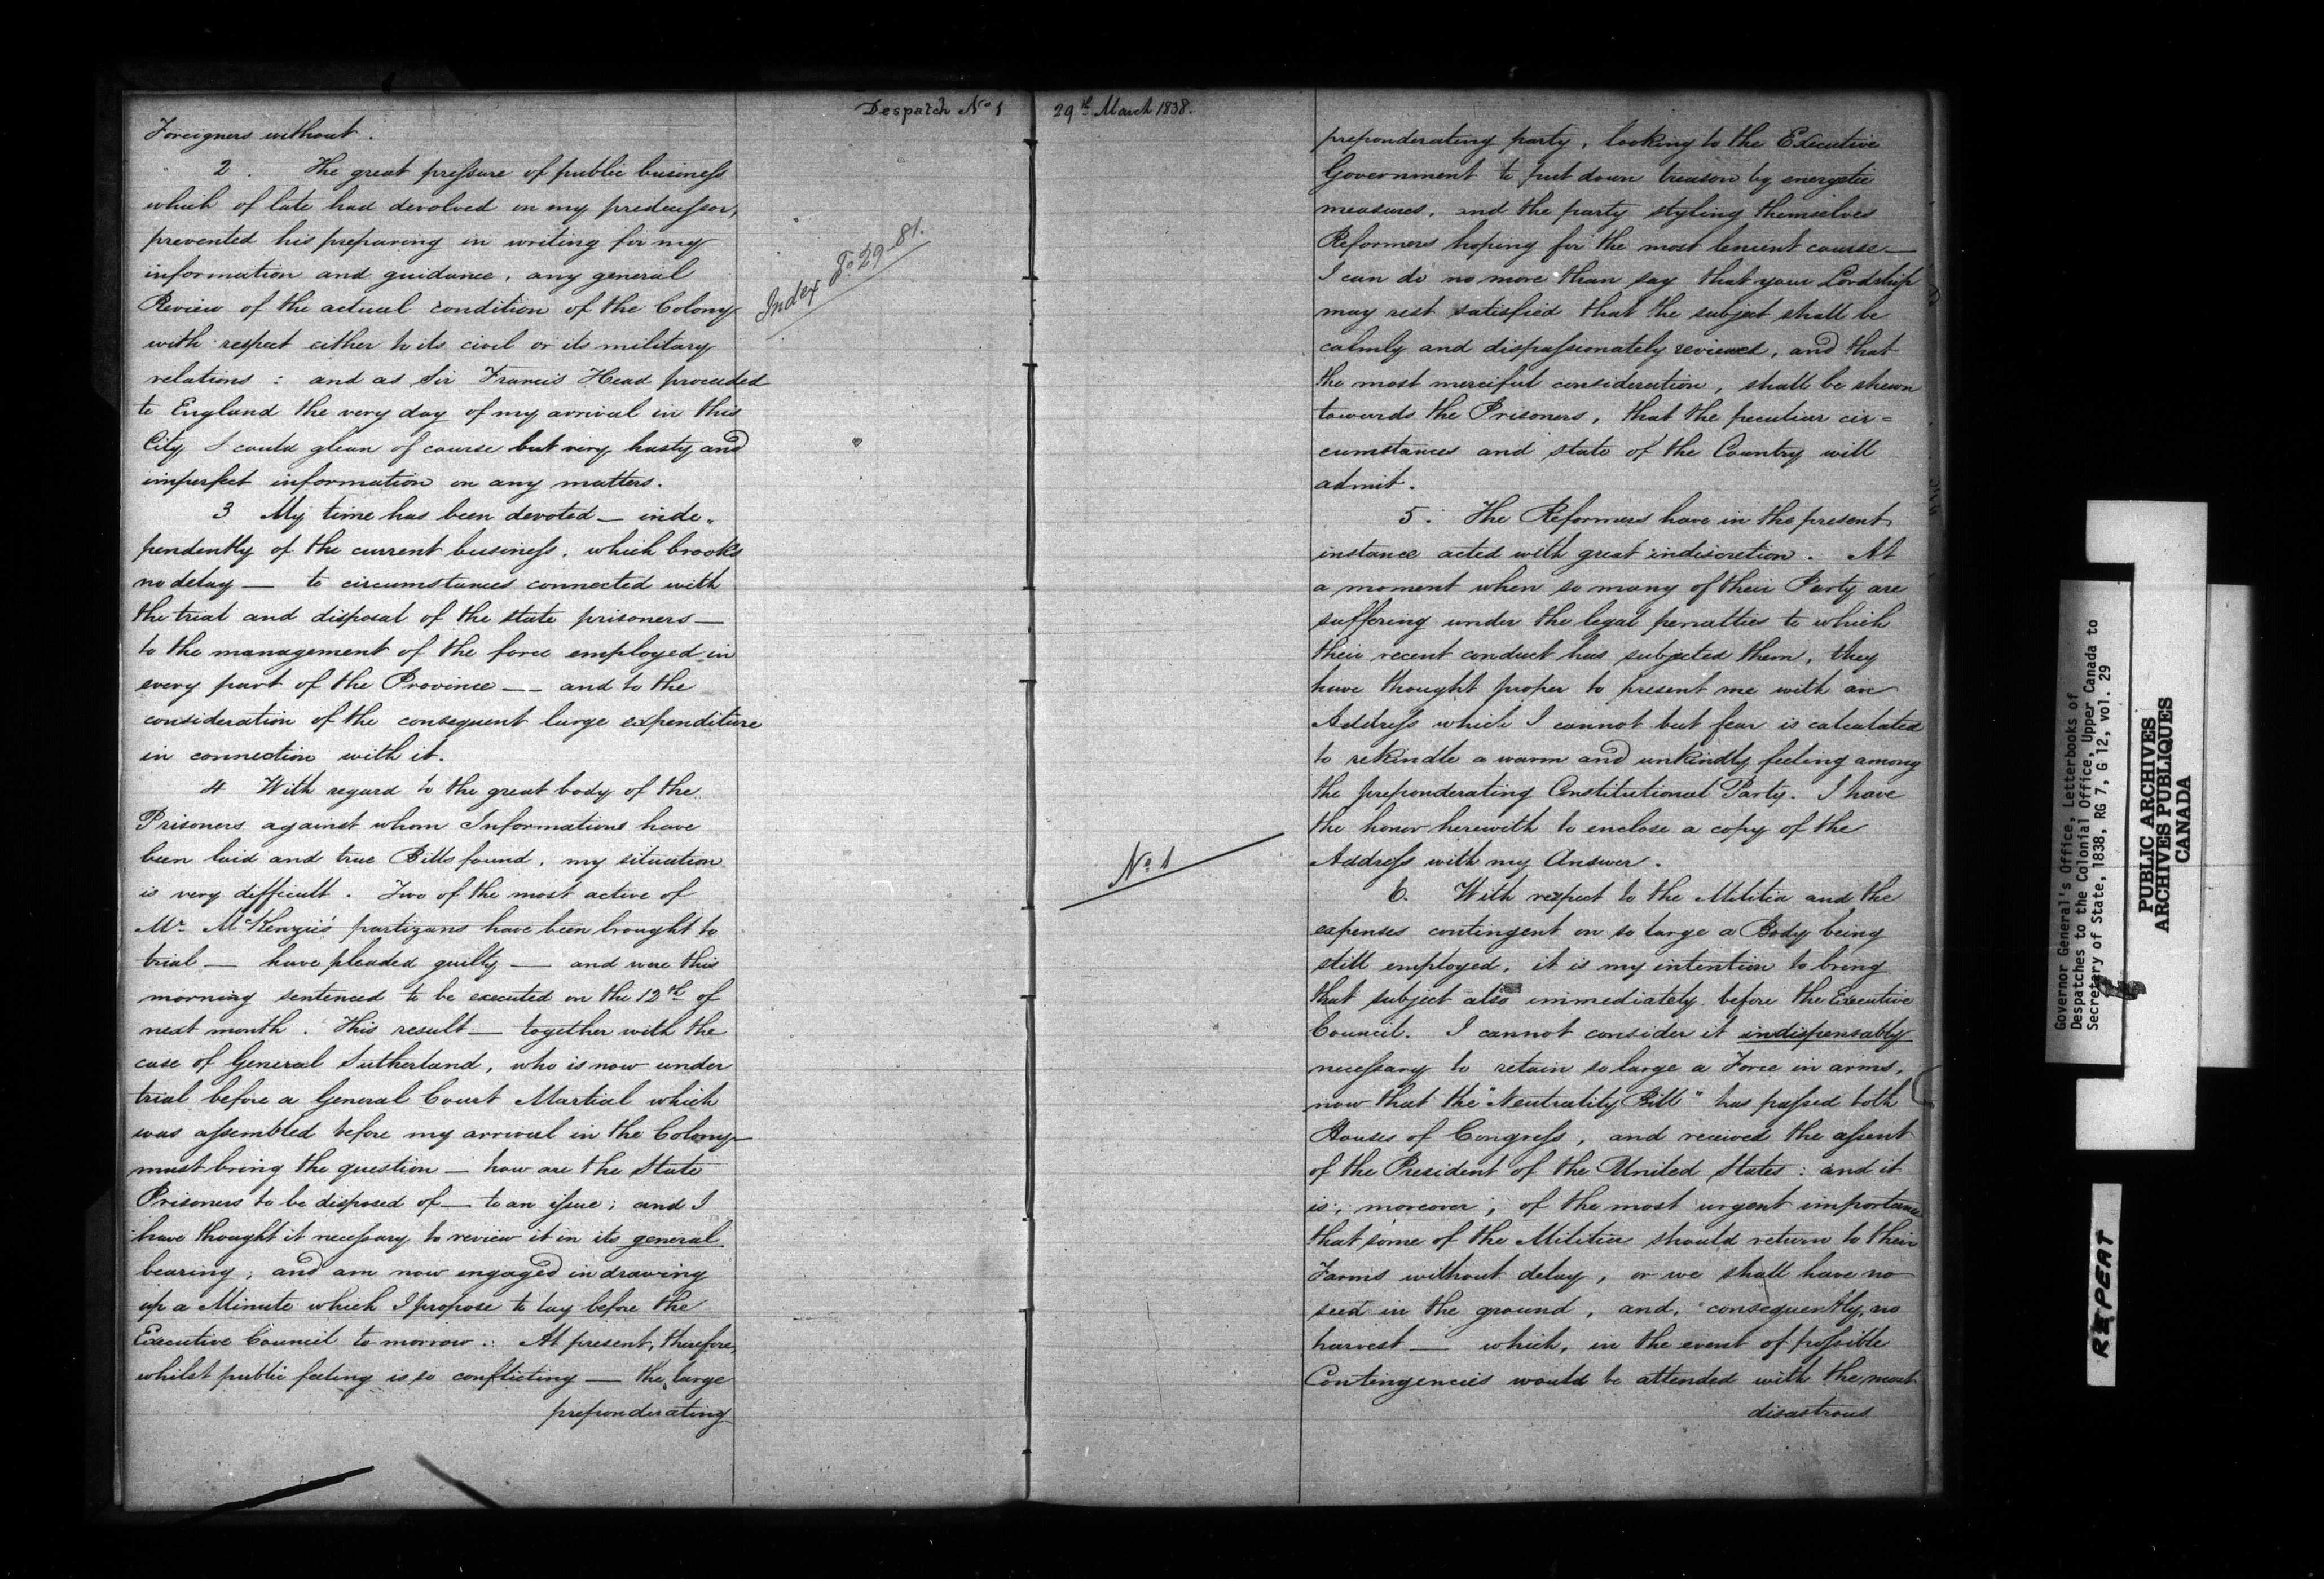 Despatch No 1
Foreigners without.
2. The great pressure of public business
which of late had devolved on my predecessor,
prevented his preparing in writing for my
information and guidance, any general
Review of the actual condition of the Colony
with respect either to its civil or its military
relations : and as Sir Francis Head proceeded
to England the very day of my arrival in this
City I could glean of course but very hasty and
imperfect information on any matters.
3 My time has been devoted — inde„
pendently of the current business, which brooks
no delay — to circumstances connected with
the trial and disposal of the state prisoners —
to the management of the force employed in
every part of the Province — and to the
consideration of the consequent large expenditure
in connection with it.
4 With regard to the great body of the
Prisoners against whom Informations have
been laid and true Bills found, my situation
is very difficult. Two of the most active of
Mr McKenzie's partizans have been brought to
trial — have pleaded guilty — and were this
morning sentenced to be executed on the 12th of
next month. This result — together with the
case of General Sutherland, who is now under
trial before a General Court Martial which
was assembled before my arrival in the Colony —
must bring the question — how are the State
Prisoners to be disposed of — to an issue; and I
have thought it necessary to review it in its general
bearing; and am now engaged in drawing
up a Minute which I propose to lay before the
Executive Council to morrow. At present, therefore,
whilst public feeling is so conflicting — the large
preponderating
Index Fo 29-81.
29th March 1838.
No 1
preponderating party, looking to the Executive
Government to put down treason by energetic
measures, and the party styling themselves
Reformers hoping for the most lenient course —
I can do no more than say that your Lordship
may rest satisfied that the subject shall be
calmly and dispassionately reviewed, and that
the most merciful consideration, shall be shewn
towards the Prisoners, that the peculiar cir=
cumstances and state of the Country will
admit.
5. The Reformers have in the present
instance acted with great indiscretion. At
a moment when so many of their Party are
suffering under the legal penalties to which
their recent conduct has subjected them, they
have thought proper to present me with an
Address which I cannot but fear is calculated
to rekindle a warm and unkindly feeling among
the preponderating Constitutional Party. I have
the honor herewith to enclose a copy of the
Address with my Answer.
6. With respect to the Militia and the
expenses contingent on so large a Body being
still employed, it is my intention to bring
that subject also immediately before the Executive
Council. I cannot consider it indispensably
necessary to retain so large a Force in arms,
now that the "Neutrality Bill" has passed both
Houses of Congress, and received the assent
of the President of the United States : and it
is, moreover, of the most urgent importance
that some of the Militia should return to their
Farms without delay, or we shall have no
seed in the ground, and, consequently, no
harvest — which, in the event of possible
Contingencies would be attended with the most
disastrous
Governor General's Office, Letterbooks of
Despatches to the Colonial Office, Upper Canada to
Secretery of State, 1838, RG 7, G 12, vol. 29
PUBLIC ARCHIVES
ARCHIVES PUBLIQUES
CANADA
REPEAT